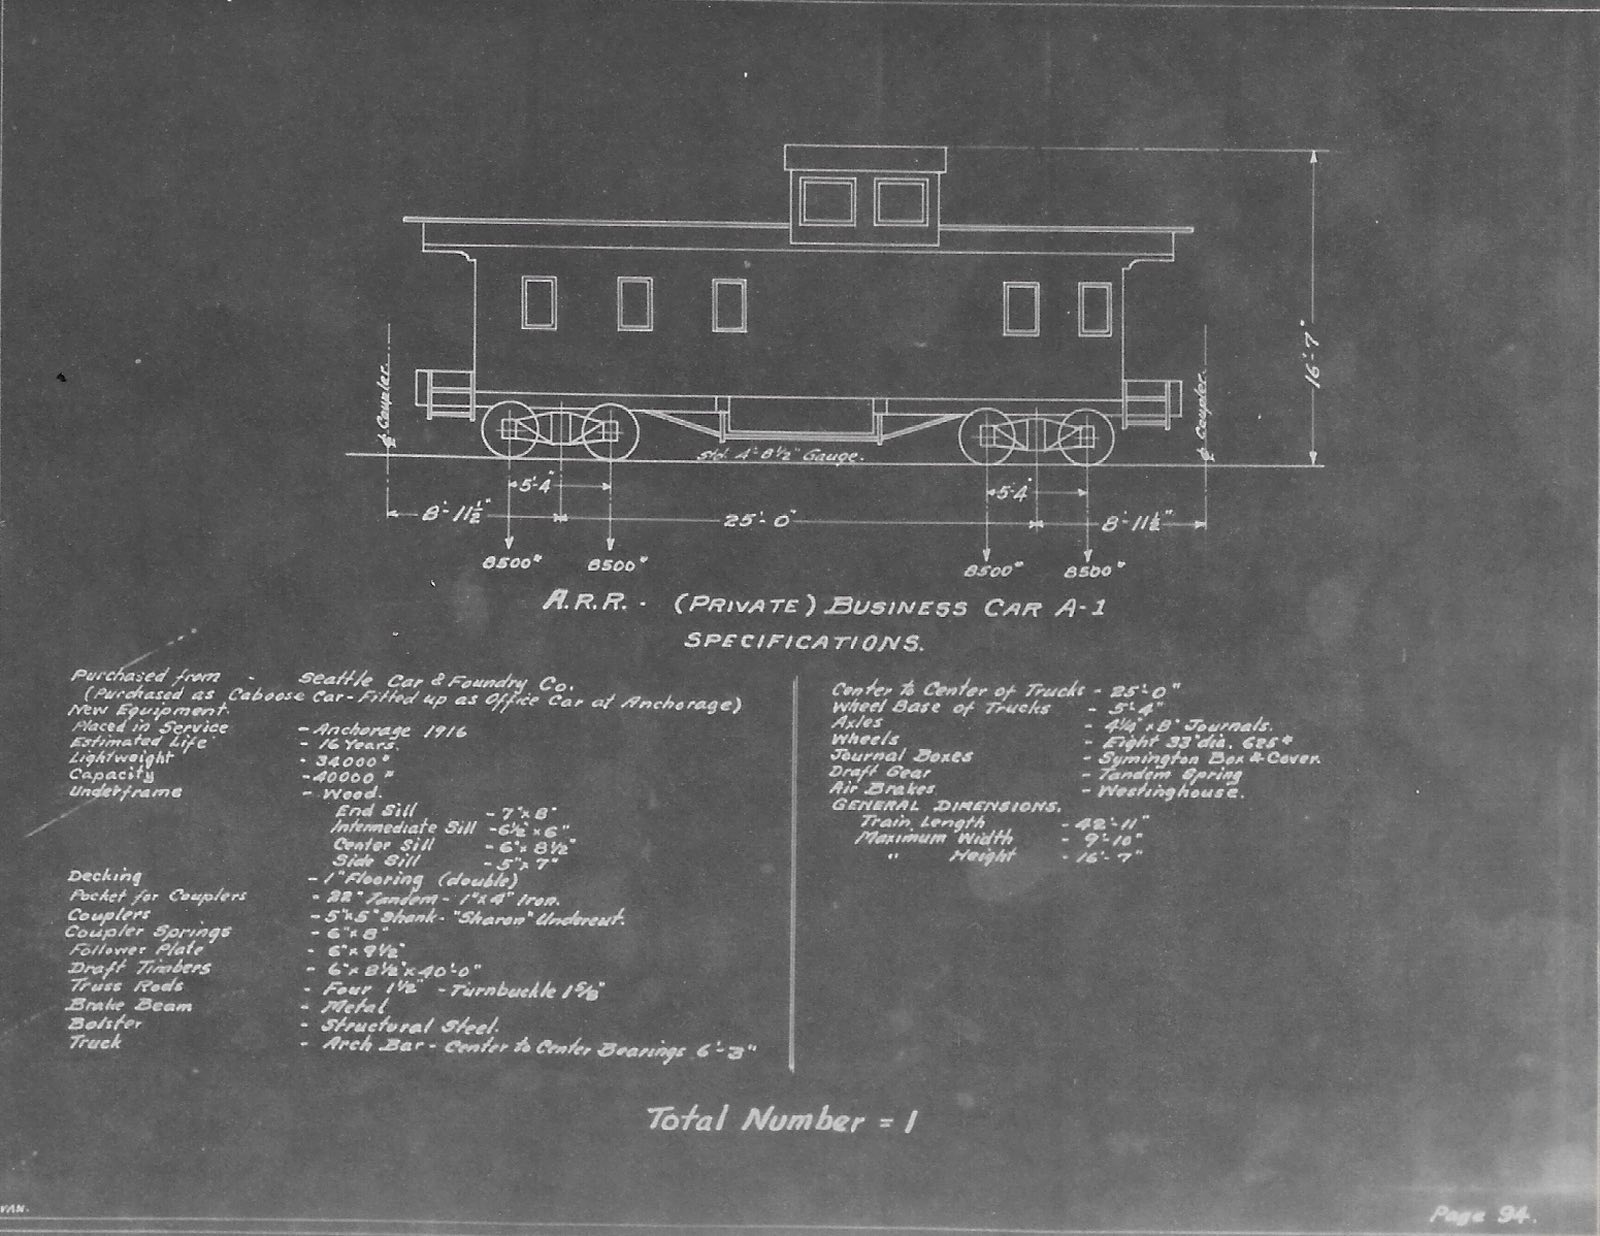 16'-7"
℄ Coupler.
℄ Coupler.
Std. 4'-8½" Gauge.
5'-4"
5'-4"
8'-11½"
25'-0"
8'-11½"
8500#
8500#
8500#
8500#
A.R.R. - (PRIVATE) BUSINESS CAR A-1
SPECIFICATIONS.
Purchased from - Seattle Car & Foundry Co.
(Purchased as Caboose Car - Fitted up as Office Car at Anchorage)
New Equipment.
Placed in Service - Anchorage 1916
Estimated Life - 16 Years.
Lightweight - 34000#
Capacity - 40000 "
Underframe - Wood.
End Sill - 7"x8"
Intermediate Sill - 6½"x6"
Center Sill - 6"x8½"
Side Sill - 5"x7"
Decking - 1" Flooring (double)
Pocket for Couplers - 22" Tandem - 1"x4" Iron.
Couplers - 5"x5" Shank - "Sharon" Undercut.
Coupler Springs - 6"x8"
Follower Plate - 6"x9½"
Draft Timbers - 6"x8½"x40'-0"
Truss Rods - Four 1½" - Turnbuckle 1⅝"
Brake Beam - Metal
Bolster - Structural Steel.
Truck - Arch Bar - Center to Center Bearings 6'-3"
Center to Center of Trucks - 25'-0"
Wheel Base of Trucks - 5'-4"
Axles - 4¼"x8" Journals.
Wheels - Eight 33" dia. 625#
Journal Boxes - Symington Box & Cover.
Draft Gear - Tandem Spring
Air Brakes - Westinghouse.
GENERAL DIMENSIONS.
Train Length - 42'-11"
Maximum Width - 9'-10"
" Height - 16'-7"
Total Number = 1
VAN.
Page 94.